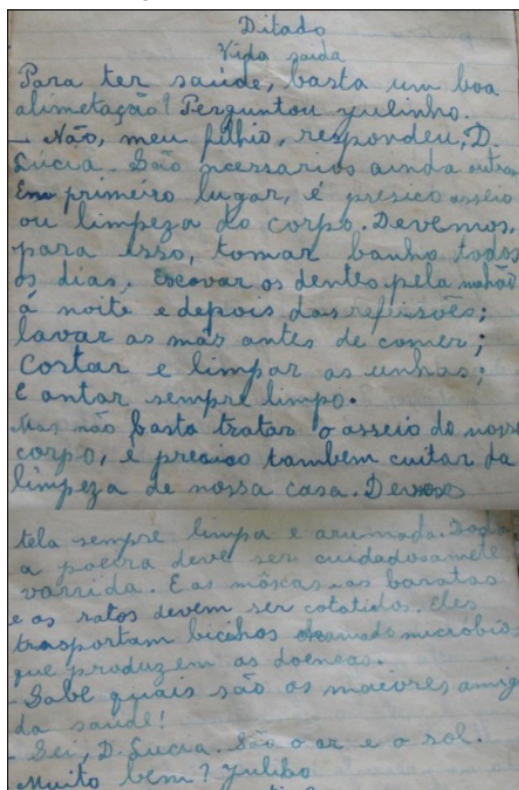 Ditado
Vida saida
Para ter saúde, basta um boa
alimetação! Perguntou yulinho.
- Não, meu filhio, respondeu, D.
Lúcia. São ncessarios ainda outras
Em primeiro lugar, é presico asseio
ou limpeza do corpo. Devemos,
para isso, tomar banho todos
os dias, escovar os dentes pela mahão
á noite e depois das refeisoẽs;
lavar as mãs antes de comer;
Costar e limpar as unhas;
E antar sempre limpo.
Mas não basta tratar o asseio do nosso
corpo, e preciso tambem cuitar da
limpeza de nossa casa. Devemos
tela sempre limpa e arumada. Toda
a poeira deve ser cuidadosamete
varrida. E as môscas, as baratas
e os ratos devem ser cotatidos. Eles
trasportam bicihos chamado micróbios
que produzem as doencas.
- Sabe quais são os maiores amigo
da saude!
- Sei, D. Lucia. São o ar e o sol.
Muito bem? Yuliho